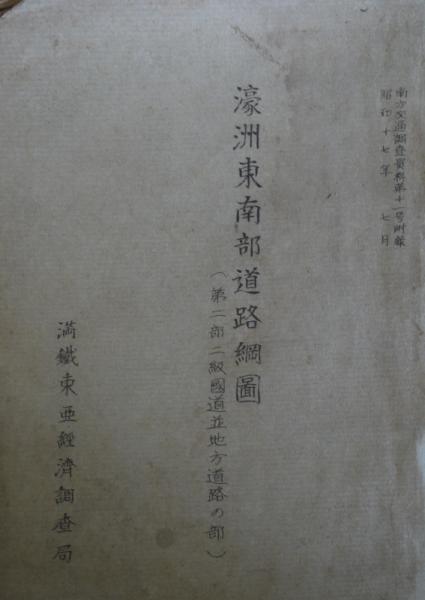 南方交通調査資料第十一号附録
昭和十七年 七月
濠洲東南部道路網圖
（第二部二級國道並地方道路の部）
満鐵東亜經濟調査局